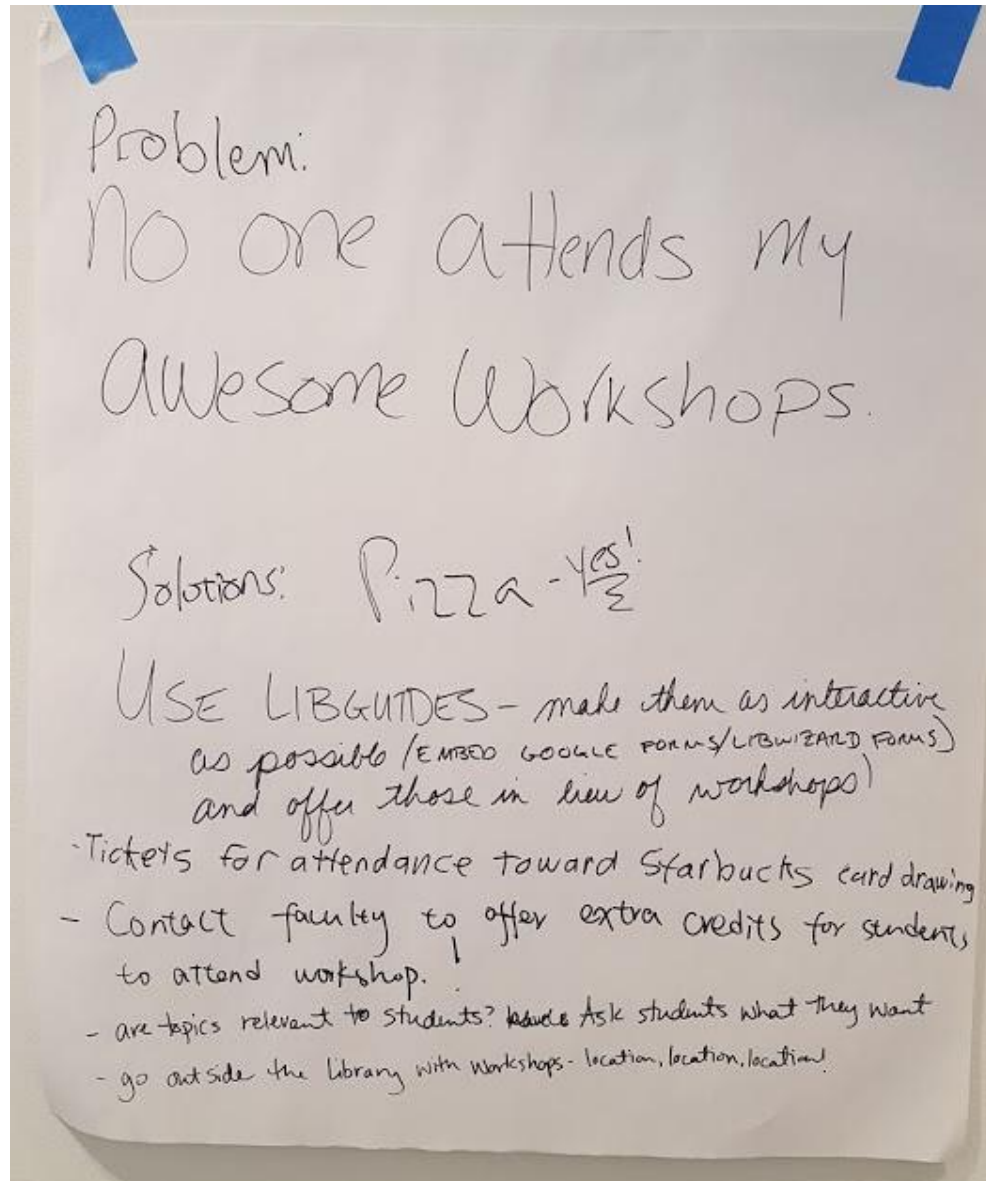 Problem:
No one attends my
awesome workshops.
Solutions: Pizza - yes!
USE LIBGUIDES - make them as interactive
as possible (EMBED GOOGLE FORMS/LIBWIZARD FORMS)
and offer those in lieu of workshops)
- Tickets for attendance toward Starbucks card drawing
- Contact faculty to offer extra credits for students
to attend workshop. !
- are topics relevant to students? Ask students what they want
- go outside the library with workshops - location, location, location!